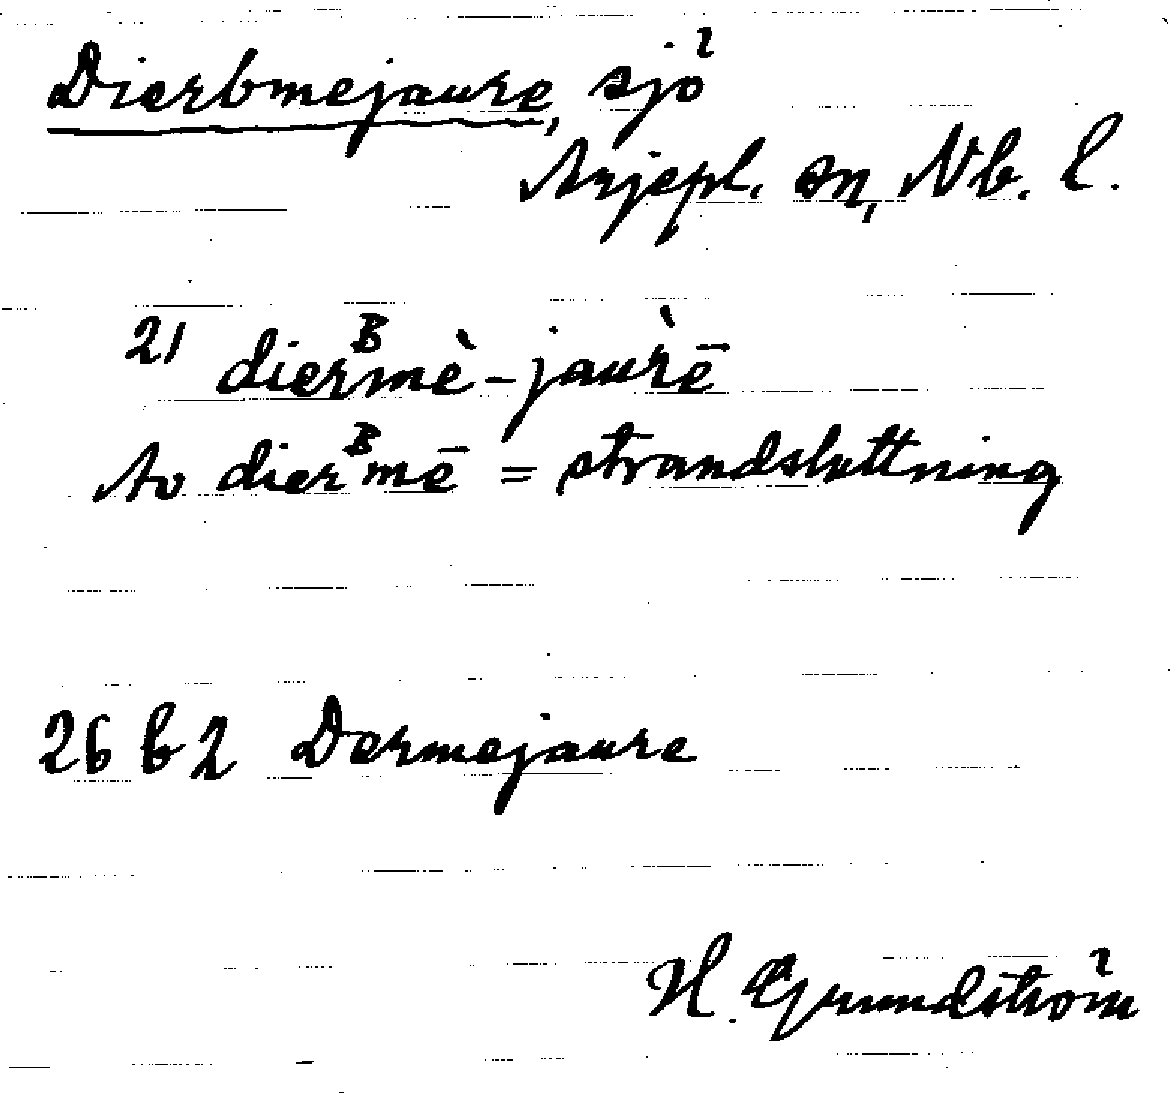 Dierbmejaure, sjö
Arjepl. sn, Nb. l.
21 dierᴮmè-jaùrē
Av dierᴮmē = strandsluttning
26 b 2 Dermejaure
H. Grundström